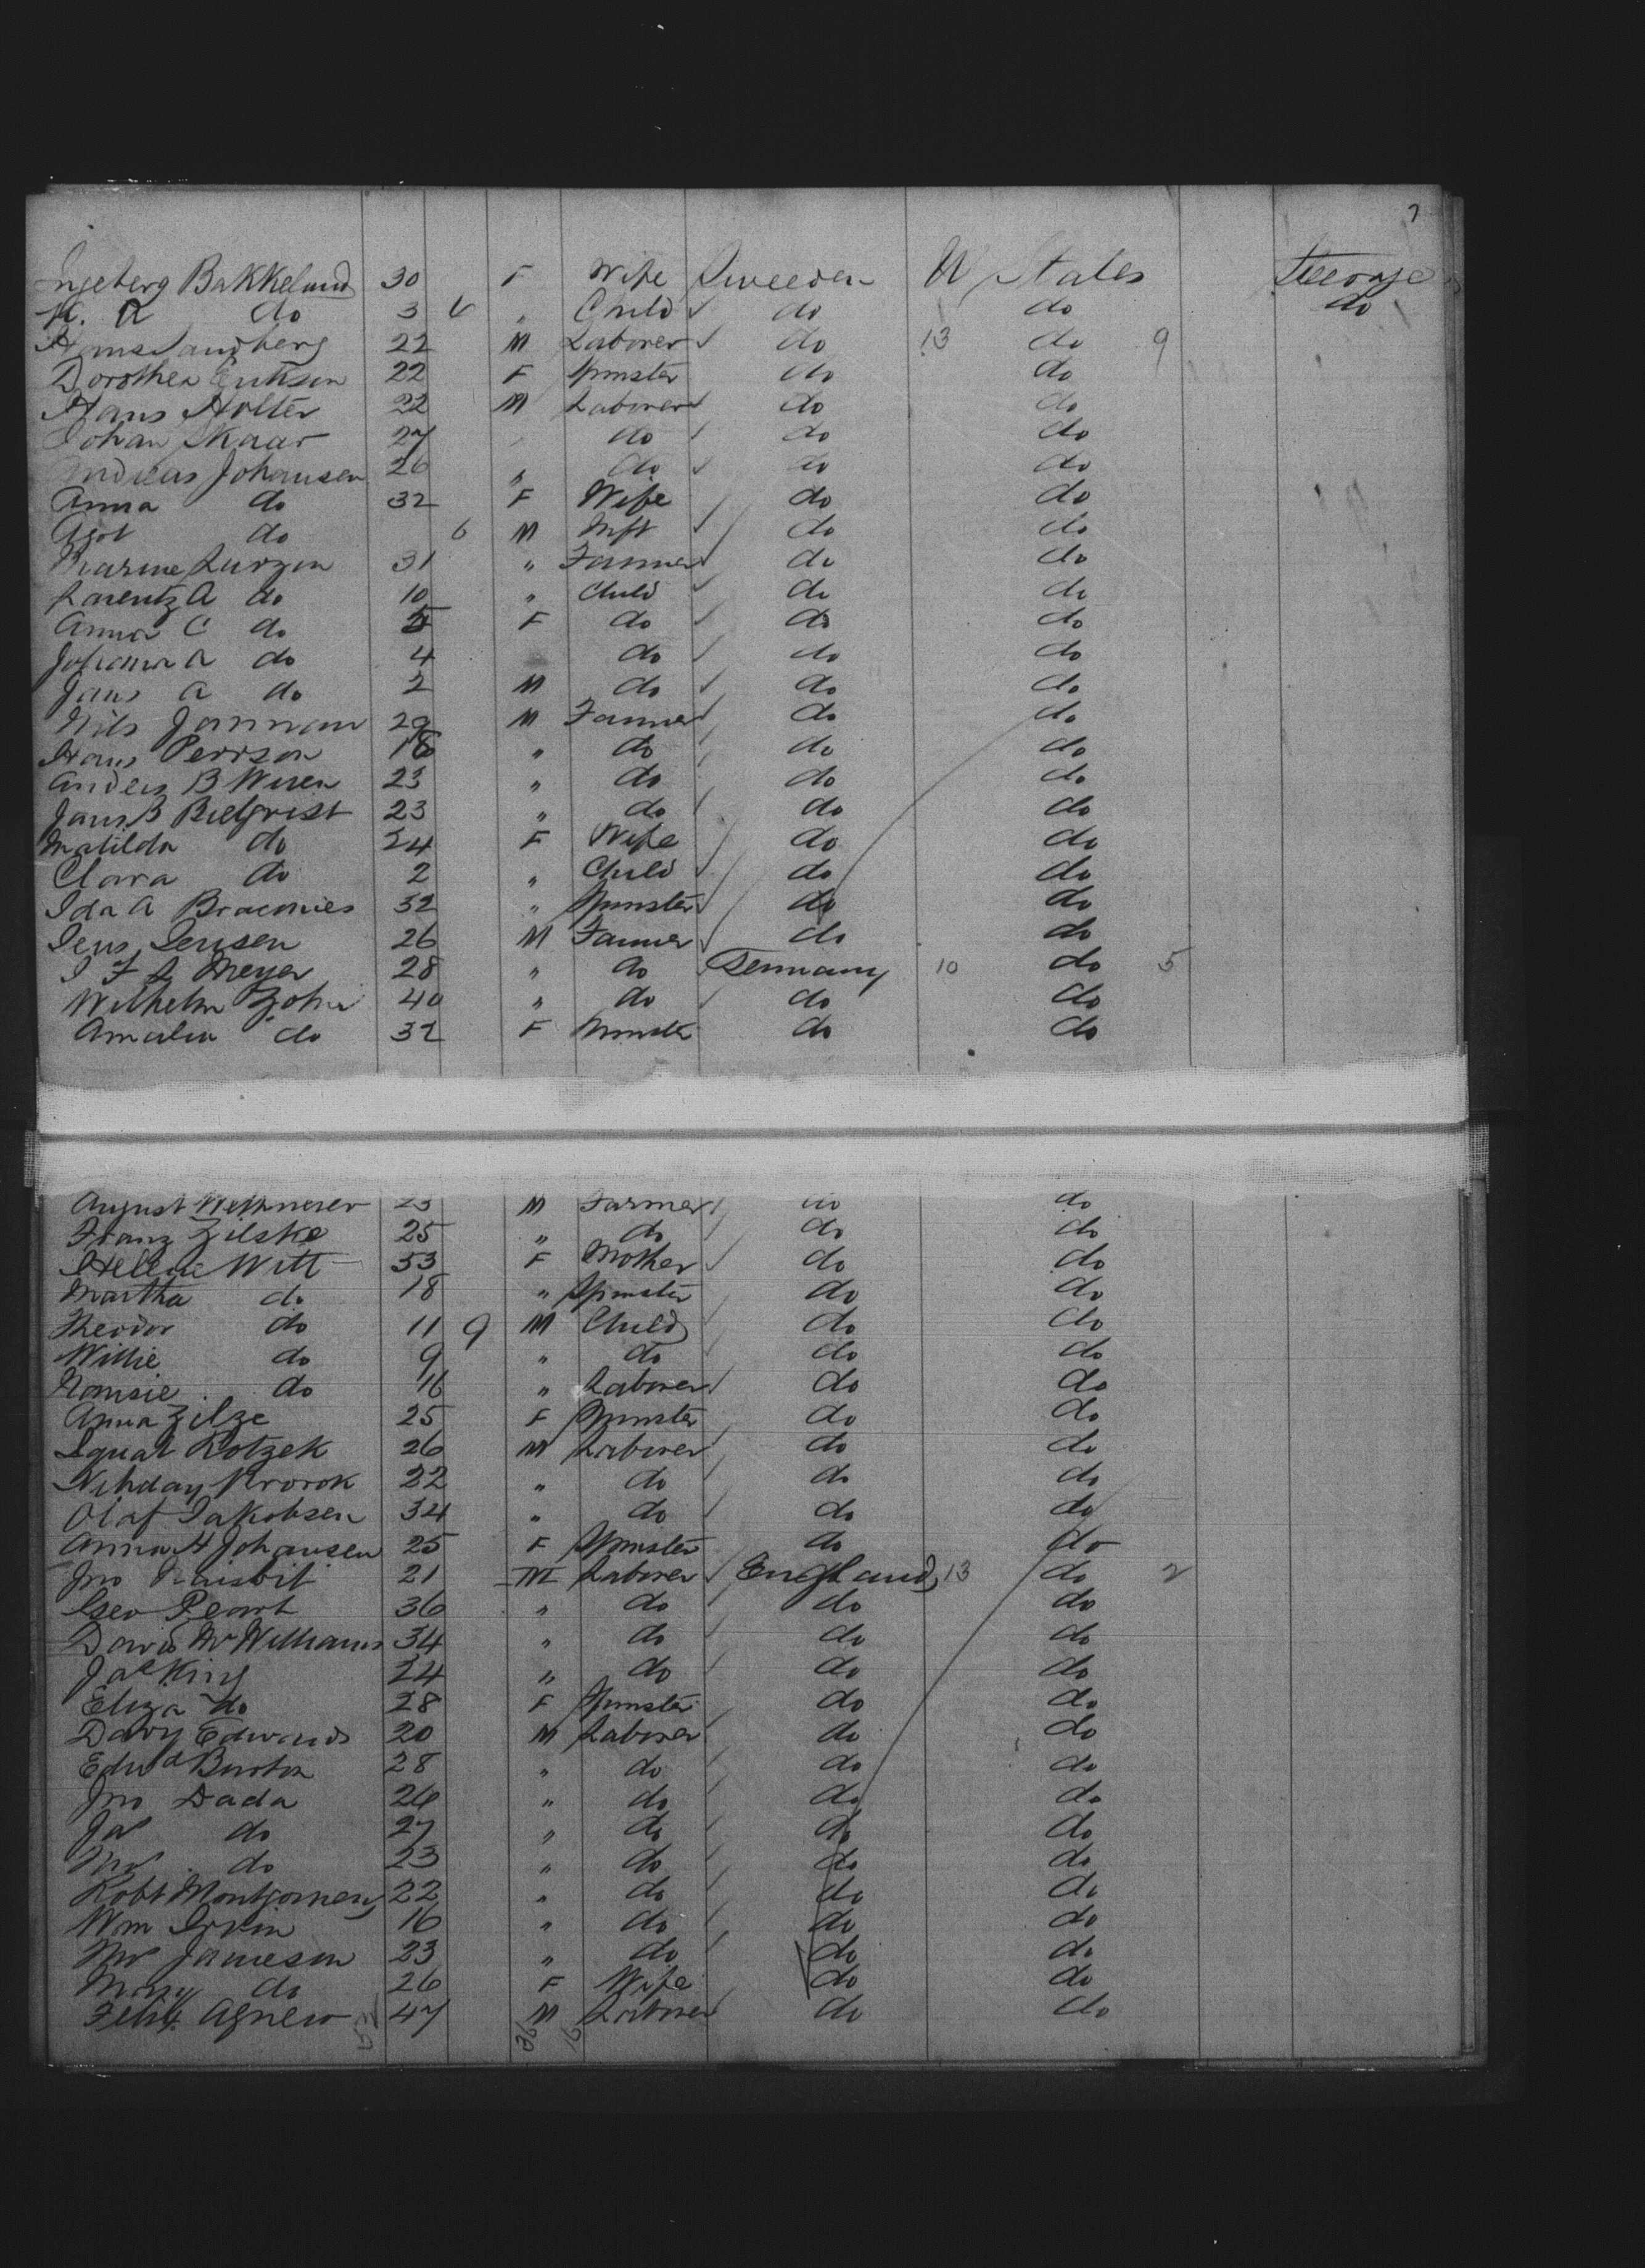 7
Ingeberg Bakkelund 30 F Wife Sweeden U States Steerage
A. do 3 6 " Child do do do
Hans Sandberg 22 M Laborer do 13 do 9
Dorothea 22 F Spinster do do
Hans Holter 22 M Laborer do do
Johan Skaar 27 do do do
Andreas Johansen 26 " do do do
Anna do 32 F Wife do do
Agot do 6 M Inft do do
31 " Farmer do do
Larentz A do 10 " Child do do
Anna C do 5 F do do do
Johanna A do 4 do do do
Jans A do 2 M do do do
Nils 29 M Farmer do do
Hans Perrson 18 " do do do
Anders B Wiren 23 " do do do
Jans B Bielqvist 23 " do do do
Matilda do 24 F Wife do do
Clara do 2 " Child do do
Ida A 32 " Spinster do do
Jens Jensen 26 M Farmer do do
Meyer 28 " do Germany 10 do 5
Wilhelm 40 " do do do
Amalia do 32 F Spinster do do
August 23 M Farmer do do
Franz Zilske 25 " do do do
Helene Witt 53 F Mother do do
Martha do 18 " Spinster do do
Theodor do 11 9 M Child do do
Willie do 9 " do do do
do 16 " Laborer do do
Anna Zilze 25 F Spinster do do
Kotzek 26 M Laborer do do
22 " do do do
Olaf Jakobsen 34 " do do do
Anna H Johansen 25 F Spinster do do
Jno Naisbit 21 M Laborer England 13 do 2
Geo Peart 36 " do do do
David McWilliams 34 " do do do
Jas King 24 " do do do
Eliza do 28 F Spinster do do
Davy Edwards 20 M Laborer do do
Edwd Burton 28 " do do do
Jno Dada 26 " do do do
Jas do 27 " do do do
do 23 " do do do
Robt Montgomery 22 " do do do
Wm Irvin 16 " do do do
Jameson 23 " do do do
Mary do 26 F Wife do do
Felix Agnew 47 M Laborer do do